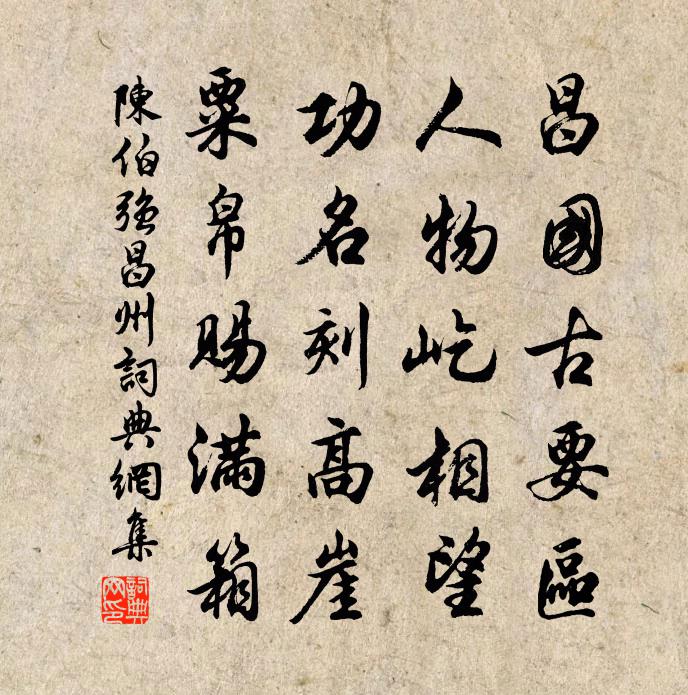 昌國古要區
人物屹相望
功名刻高崖
粟帛賜滿箱
陳伯强昌州詞典網集
詞典网印